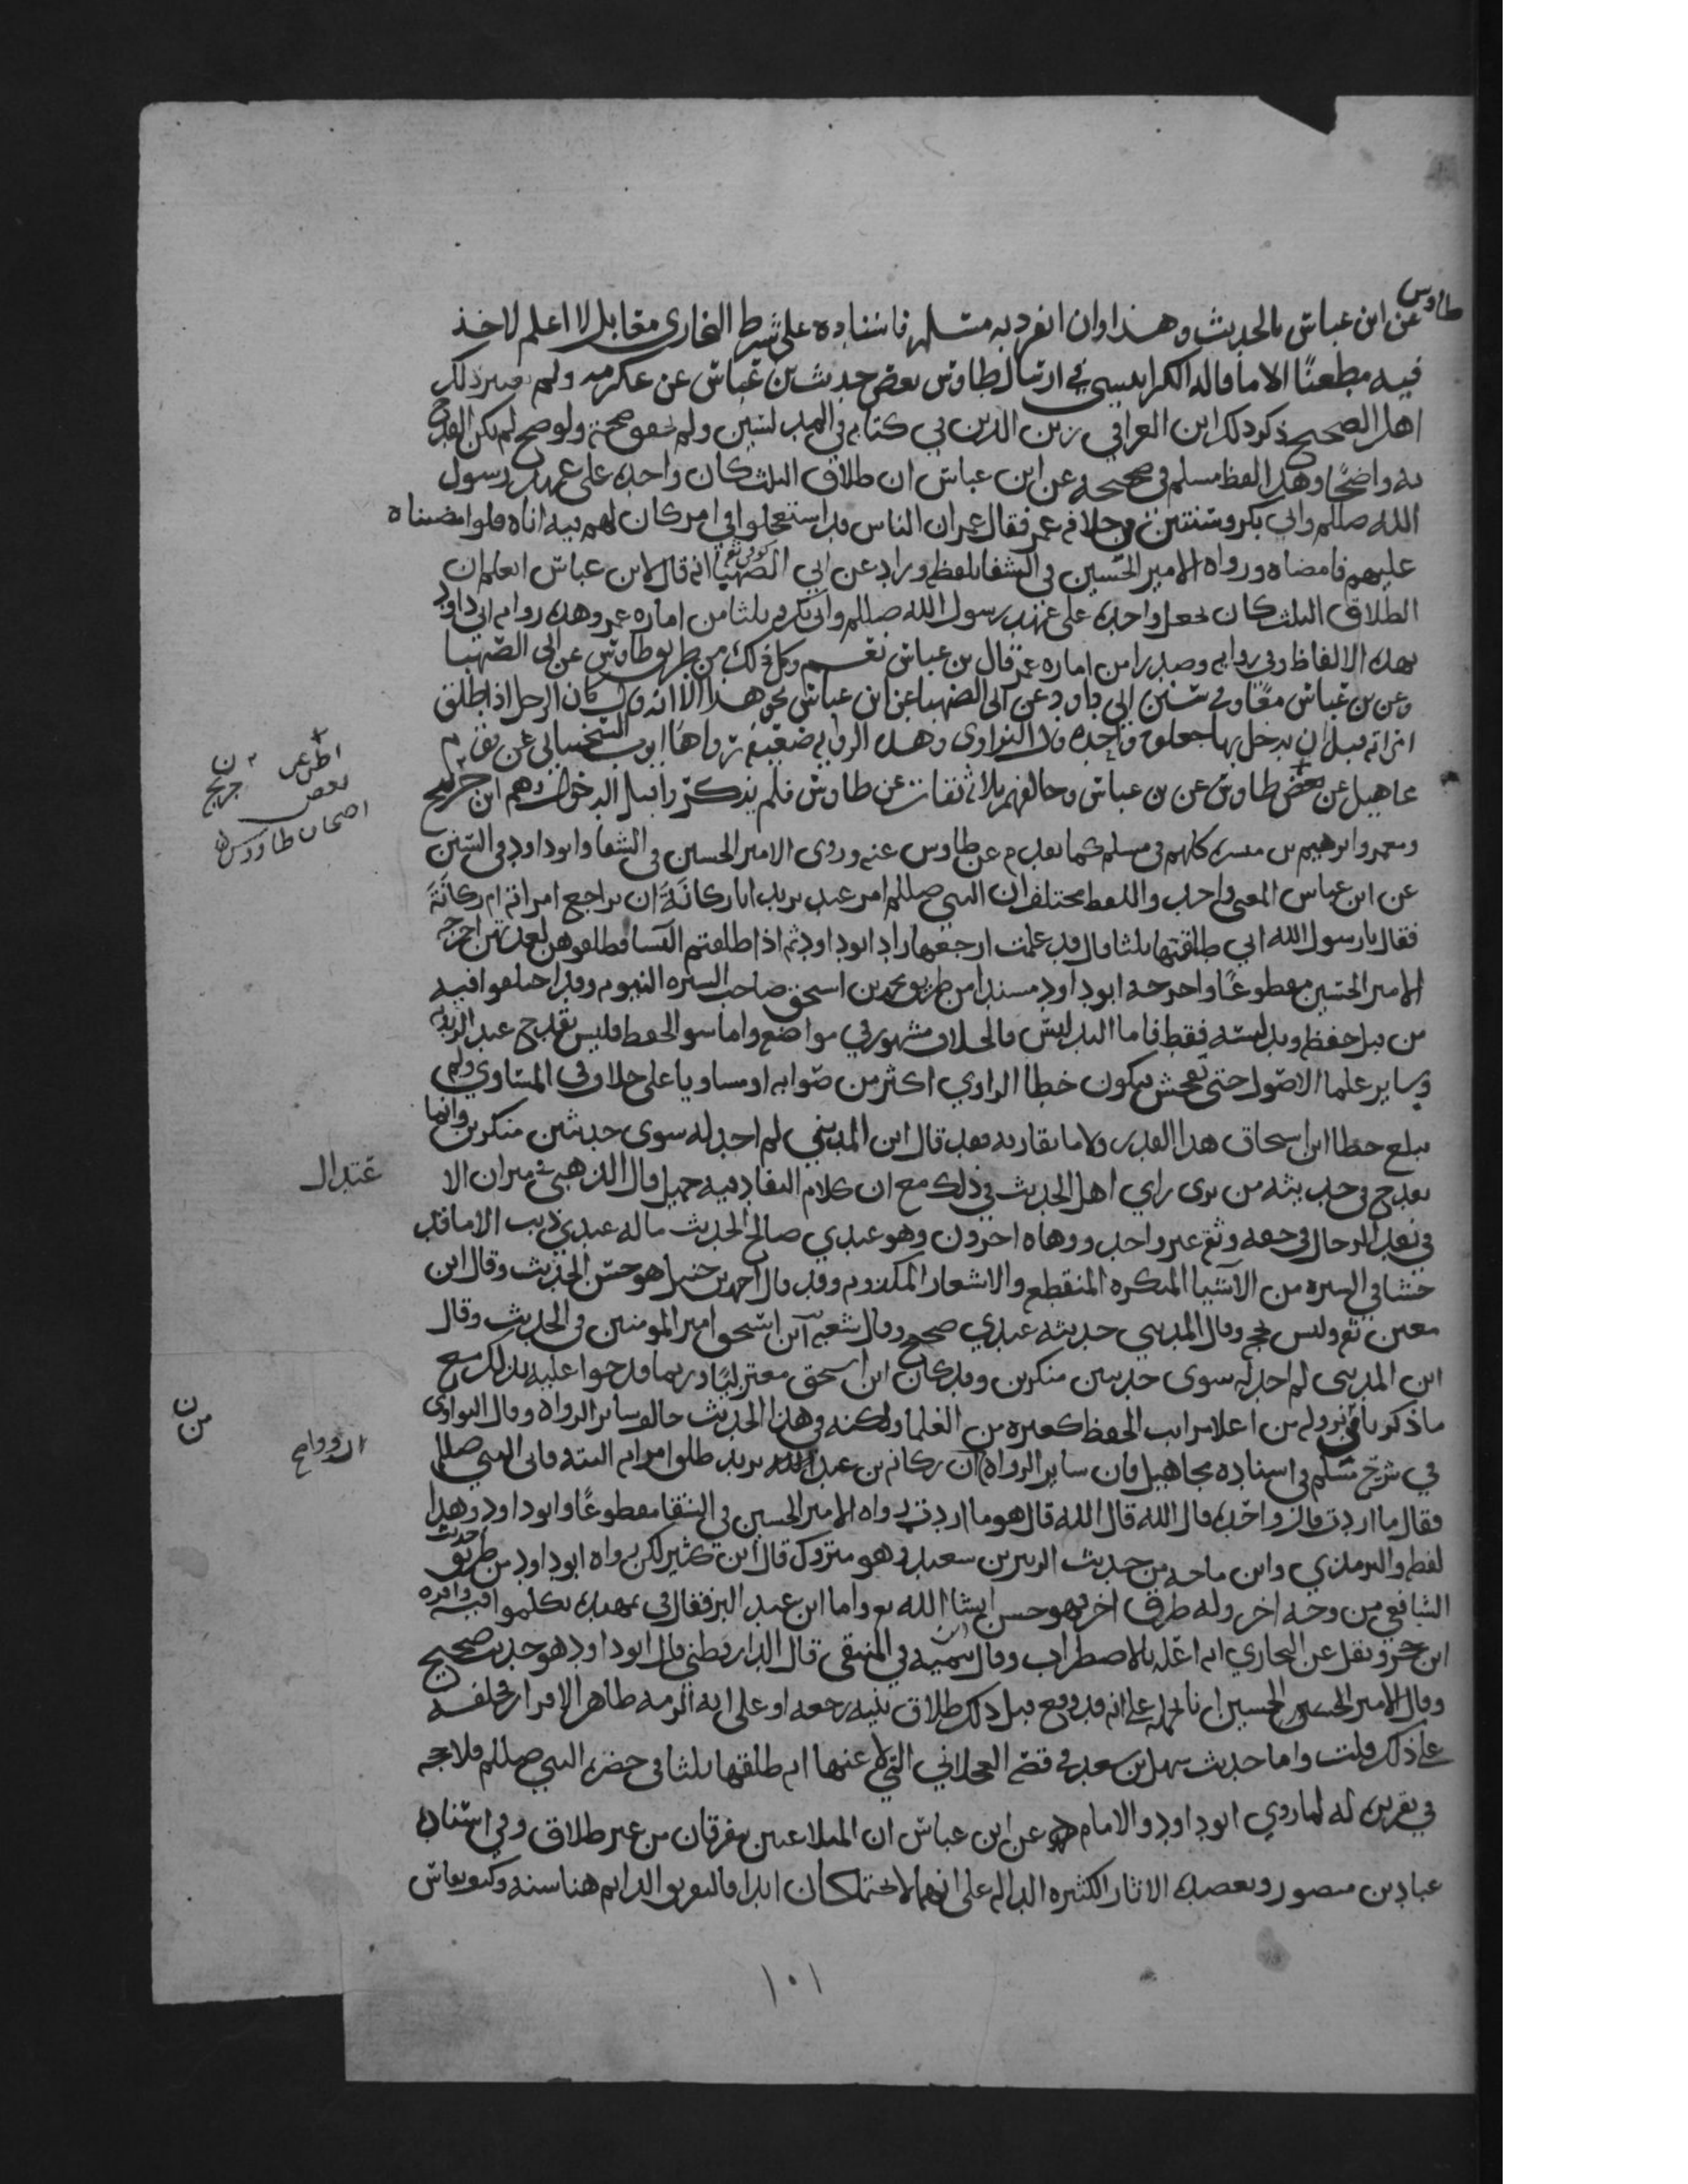 طاوس
عن ابن عباس بالحديث وهذا وان انفرد به مسلم فاسناده على شرط البخاري مقابل لا اعلم لاحد
فيه مطعنًا الا ما قاله الكرابيسي في ارسال طاوس بعض حديث بن عباس عن عكرمه ولم ذلك
اهل الصحيح ذكر ذلك ابن العراقي زين الدين في كتابه في المدلسين ولم صحته ولو صح لم يكن القدح
به واضحًا وهذا لفظ مسلم في صحيحه عن ابن عباس ان طلاق الثلث كان واحده على عهد رسول
الله صللم وابي بكر وسنتين من خلافه عمر فقال عمر ان الناس قد استعجلوا في امر كان لهم فيه اناه فلو امضيناه
عليهم فامضاه ورواه الامير الحسين في الشفا بلفظه وزاد عن ابي الصهبا انه قال لابن عباس اتعلم ان
الطلاق الثلث كان تجعل واحده على عهد رسول الله صللم وابي بكر وثلثا من اماره عمر وهذه روايه ابي داود
بهذه الالفاظ وفي روايه وصدرا من اماره عمر قال بن عباس نعم وكل ذلك من طريق طاوس عن ابي الصهبا
وعن بن عباس معًا وفي سنن ابي داود عن ابي الصهبا عن ابن عباس نحو هذا الا انه قال كان الرجل اذا طلق
امراته قبل ان يدخل بها جعلوه واحده قال النواوي وهذه الروايه ضعيفه رواها ايوب السختياني عن قوم
مجاهيل عن بعض طاوس عن بن عباس وخالفهم ثلاثه ثقات عن طاوس فلم يذكروا قبل الدخول وهم ابن جريج
ومعمر وابرهيم بن ميسره كلهم في مسلم كما تقدم عن طاوس عنه وروى الامير الحسين في الشفا وابو داود في السنن
عن ابن عباس المعنى واحد واللفظ مختلف ان النبي صللم امر عبد يزيد ابا ركانة ان يراجع امراته ام ركانة
فقال يا رسول الله اني طلقتها ثلثا قال قد علمت ارجعها زاد ابو داود ثم اذا طلقتم النسا فطلقوهن لعدتهن اخرجه
الامير الحسين مقطوعًا واخرجه ابو داود مسندا من طريق محمد بن اسحق صاحب السيره النبويه وقد اختلفوا فيه
من قبل حفظه وتدليسه فقط فاما التدليس فالخلاف مشهور في مواضع واما سو الحفظ فليس يقدح عند الزيديه
وساير علما الاصول حتى يفحش فيكون خطا الراوي اكثر من صوابه او مساويا على خلاف في المساوي ولم
يبلغ خطا ابن اسحاق هذا القدر ولا ما يقاربه فقد قال ابن المديني لم اجد له سوى حديثين منكرين وانما
يقدح في حديثه من يرى راي اهل الحديث في ذلك مع ان كلام النقاد فيه جميل قال الذهبي في ميزان الا
عتدال
في نقد الرجال في حقه وثقه غير واحد ووهاه اخرون وهو عندي صالح الحديث ما له عندي ذنب الا ما قد
حشا في السيره من الاشيا المنكره المنقطعه والاشعار المكذوبه وقد قال احمد بن حنبل هو حسن الحديث وقال ابن
معين ثقه وليس بحجه وقال المديني حديثه عندي صحيح وقال شعبه ابن اسحق امير المومنين في الحديث وقال
ابن المديني لم اجد له سوى حديثين منكرين وقد كان ابن اسحق معتزليًا وربما قدحوا عليه بذلك مع
ما ذكر نزوله من اعلا مراتب الحفظ كغيره من العلما ولكنه في هذا الحديث خالف ساير الرواه وقال النواوي
في شرح مسلم في اسناده مجاهيل فان ساير الرواه ان ركانه بن عبد يزيد طلق امراته البته فاتى النبي صللم
فقال ما اردت قال واحده قال الله قال الله قال هو ما اردت رواه الامير الحسين في الشفا مقطوعًا وابو داود وهذا
لفظه والترمذي وابن ماجه من حديث الزبير بن سعيد وهو متروك قال ابن كثير لكن رواه ابو داود من طريق
الشافعي من وجه اخر وله طرق اخر فهو حسن ان شا الله واما ابن عبد البر فقال في تمهيده تكلموا فيه
ونقل عن البخاري انه اعله بالاضطراب وقال تيميه في المنتقى قال الدارقطني قال ابو داود هو حديث صحيح
وقال الامير الحسين انا نحمله على انه قد وقع قبل ذلك طلاق بنيه رجعه او على انه الزمه ظاهر الاقرار
على ذلك قلت واما حديث سهل بن سعد في قصه العجلاني التي لاعنها انه طلقها ثلثا في حضره النبي صللم فلا حجه
في تقريره له لما روي ابو داود والامام عن ابن عباس ان المتلاعنين يفرقان من غير طلاق وفي اسناده
عباد بن منصور وتعضده الاثار الكثيره الداله على انهما لا يجتمعان ابدا فالتفريق الدايم هنا سنه وكيف يقاس
عن
بعض
اصحاب طاووس
جريج
١٠١